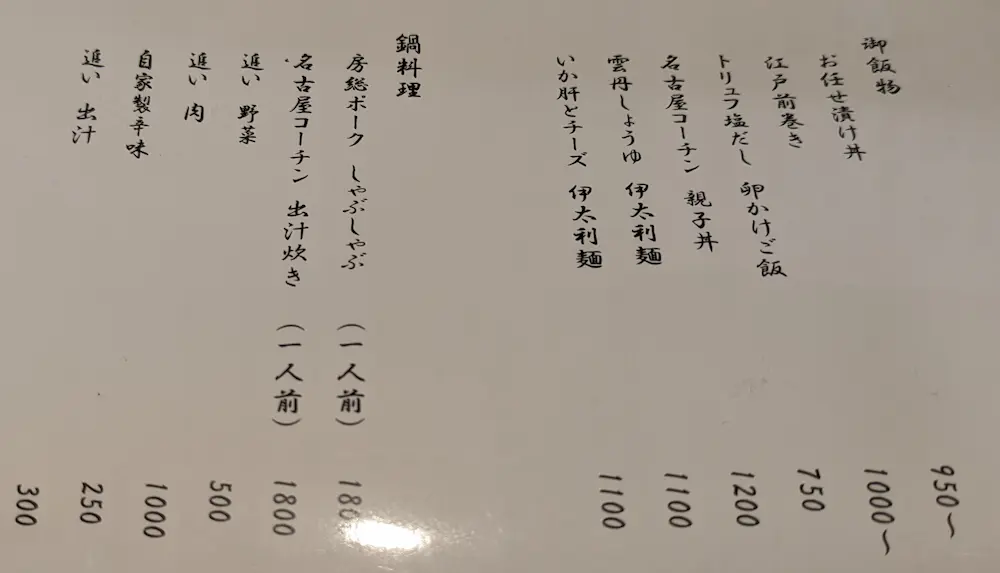 御飯物
お任せ漬け丼 950~
江戸前巻き 1000~
トリュフ塩だし 卵かけご飯 750
名古屋コーチン 親子丼 1200
雲丹しょうゆ 伊太利麺 1100
いか肝とチーズ 伊太利麺 1100
鍋料理
房総ポーク しゃぶしゃぶ (一人前) 180
名古屋コーチン 出汁炊き (一人前) 1800
追い 野菜 500
追い 肉 1000
自家製辛味 250
追い 出汁 300